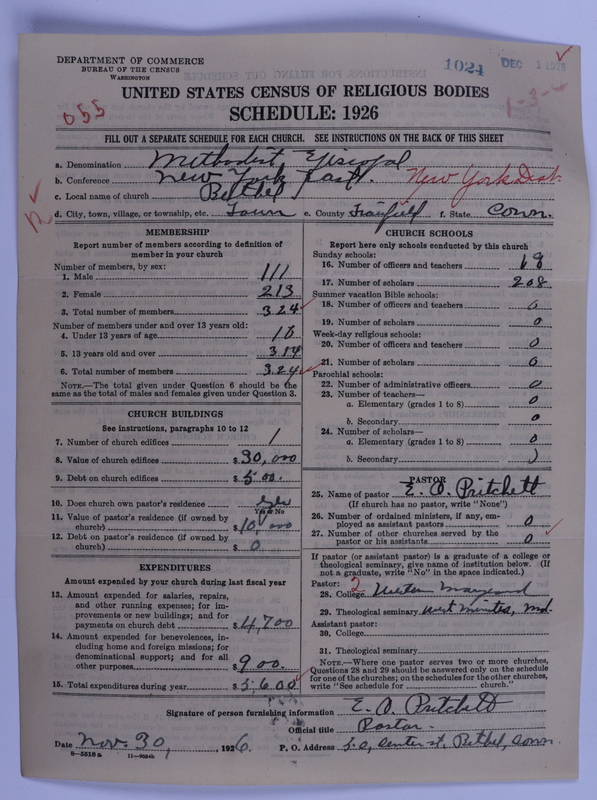 DEPARTMENT OF COMMERCE
BUREAU OF THE CENSUS
WASHINGTON
1024 DEC 1 1926
UNITED STATES CENSUS OF RELIGIOUS BODIES
SCHEDULE: 1926
055
1-3-6
FILL OUT A SEPARATE SCHEDULE FOR EACH CHURCH. SEE INSTRUCTIONS ON THE BACK OF THIS SHEET
a. Denomination Methodist Episcopal
b. Conference New York East. New York Dist.
c. Local name of church Bethel
d. City, town, village, or township, etc. Town e. County Fairfield f. State Conn.
MEMBERSHIP
Report number of members according to definition of
member in your church
Number of members, by sex:
1. Male 111
2. Female 213
3. Total number of members 324
Number of members under and over 13 years old:
4. Under 13 years of age 10
5. 13 years old and over 314
6. Total number of members 324
NOTE.—The total given under Question 6 should be the
same as the total of males and females given under Question 3.
CHURCH BUILDINGS
See instructions, paragraphs 10 to 12
7. Number of church edifices 1
8. Value of church edifices $30,000
9. Debt on church edifices $500.
10. Does church own pastor's residence (if yes
Yes or No
11. Value of pastor's residence (if owned by
church) $10,000
12. Debt on pastor's residence (if owned by
church) $0
EXPENDITURES
Amount expended by your church during last fiscal year
13. Amount expended for salaries, repairs,
and other running expenses; for im-
provements or new buildings; and for
payments on church debt $4,700
14. Amount expended for benevolences, in-
cluding home and foreign missions; for
denominational support; and for all
other purposes $900.
15. Total expenditures during year $5600
CHURCH SCHOOLS
Report here only schools conducted by this church
Sunday schools:
16. Number of officers and teachers 18
17. Number of scholars 208
Summer vacation Bible schools:
18. Number of officers and teachers 0
19. Number of scholars 0
Week-day religious schools:
20. Number of officers and teachers 0
21. Number of scholars 0
Parochial schools:
22. Number of administrative officers 0
23. Number of teachers—
a. Elementary (grades 1 to 8) 0
b. Secondary 0
24. Number of scholars—
a. Elementary (grades 1 to 8) 0
b. Secondary
PASTOR
25. Name of pastor E. O. Pritchett
(If church has no pastor, write "None")
26. Number of ordained ministers, if any, em-
ployed as assistant pastors 0
27. Number of other churches served by the
pastor or his assistants 0
If pastor (or assistant pastor) is a graduate of a college or
theological seminary, give name of institution below. (If
not a graduate, write "No" in the space indicated.)
Pastor: 2
28. College Western Maryland
29. Theological seminary Westminster, Md.
Assistant pastor:
30. College
31. Theological seminary
NOTE.—Where one pastor serves two or more churches,
Questions 28 and 29 should be answered only on the schedule
for one of the churches; on the schedules for the other churches,
write "See schedule for church."
Signature of person furnishing information E. O. Pritchett
Official title Pastor.
Date Nov. 30, , 1926. P. O. Address Center st. Bethel, Conn.
8—5516a 11—9054b